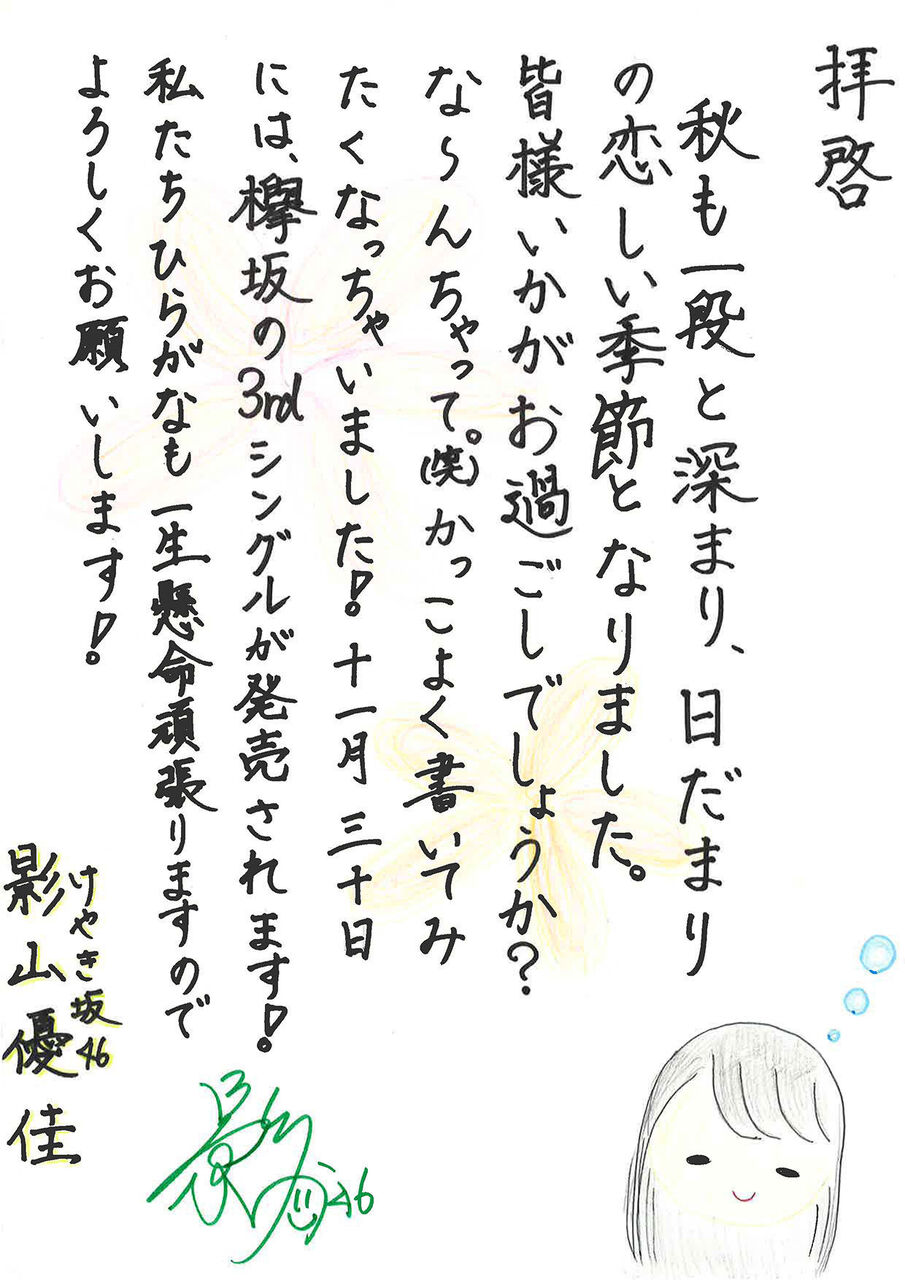 拝啓
秋も一段と深まり、日だまり
の恋しい季節となりました。
皆様いかがお過ごしでしょうか?
な~んちゃって。(笑)かっこよく書いてみ
たくなっちゃいました!十一月三十日
には、欅坂の3rdシングルが発売されます!
私たちひらがなも一生懸命頑張りますので
よろしくお願いします!
けやき坂46
影山優佳
影 46